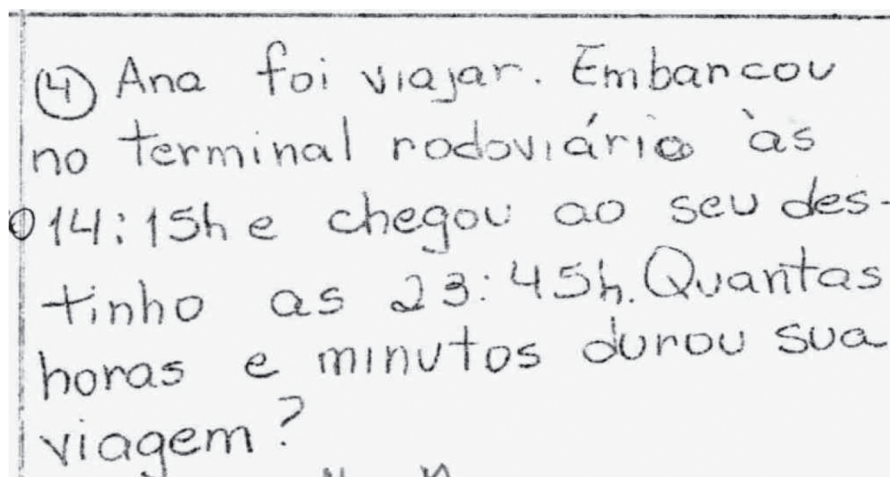 ④ Ana foi viajar. Embarcou
no terminal rodoviário às
14:15h e chegou ao seu des-
tinho as 23:45h. Quantas
horas e minutos durou sua
viagem?